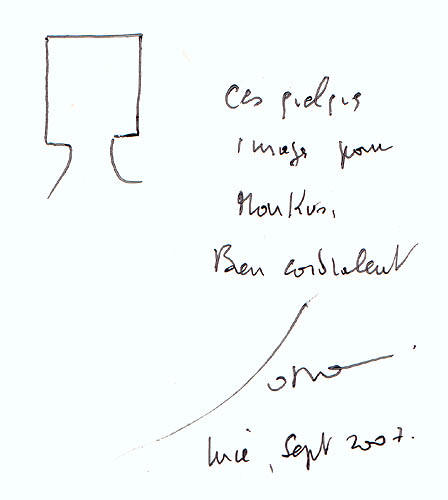 Ces quelques
images pour
Monkus,
Bien cordialement
Sept 2007.